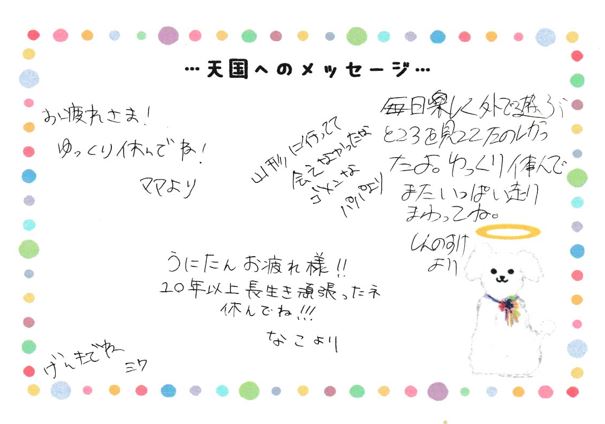 …天国へのメッセージ…
お疲れさま！
ゆっくり休んでね！
ママより
山形に行ってて
会えなかったな
ゴメンな
パパより
毎日楽しく外で遊ぶ
ところを見ててたのしかっ
たよ。ゆっくり休んで
またいっぱい走り
まわってね。
しんのすけ
より
うにたんお疲れ様!!
20年以上長生き頑張ったネ
休んでね!!!
なこより
げんきでね
ミク